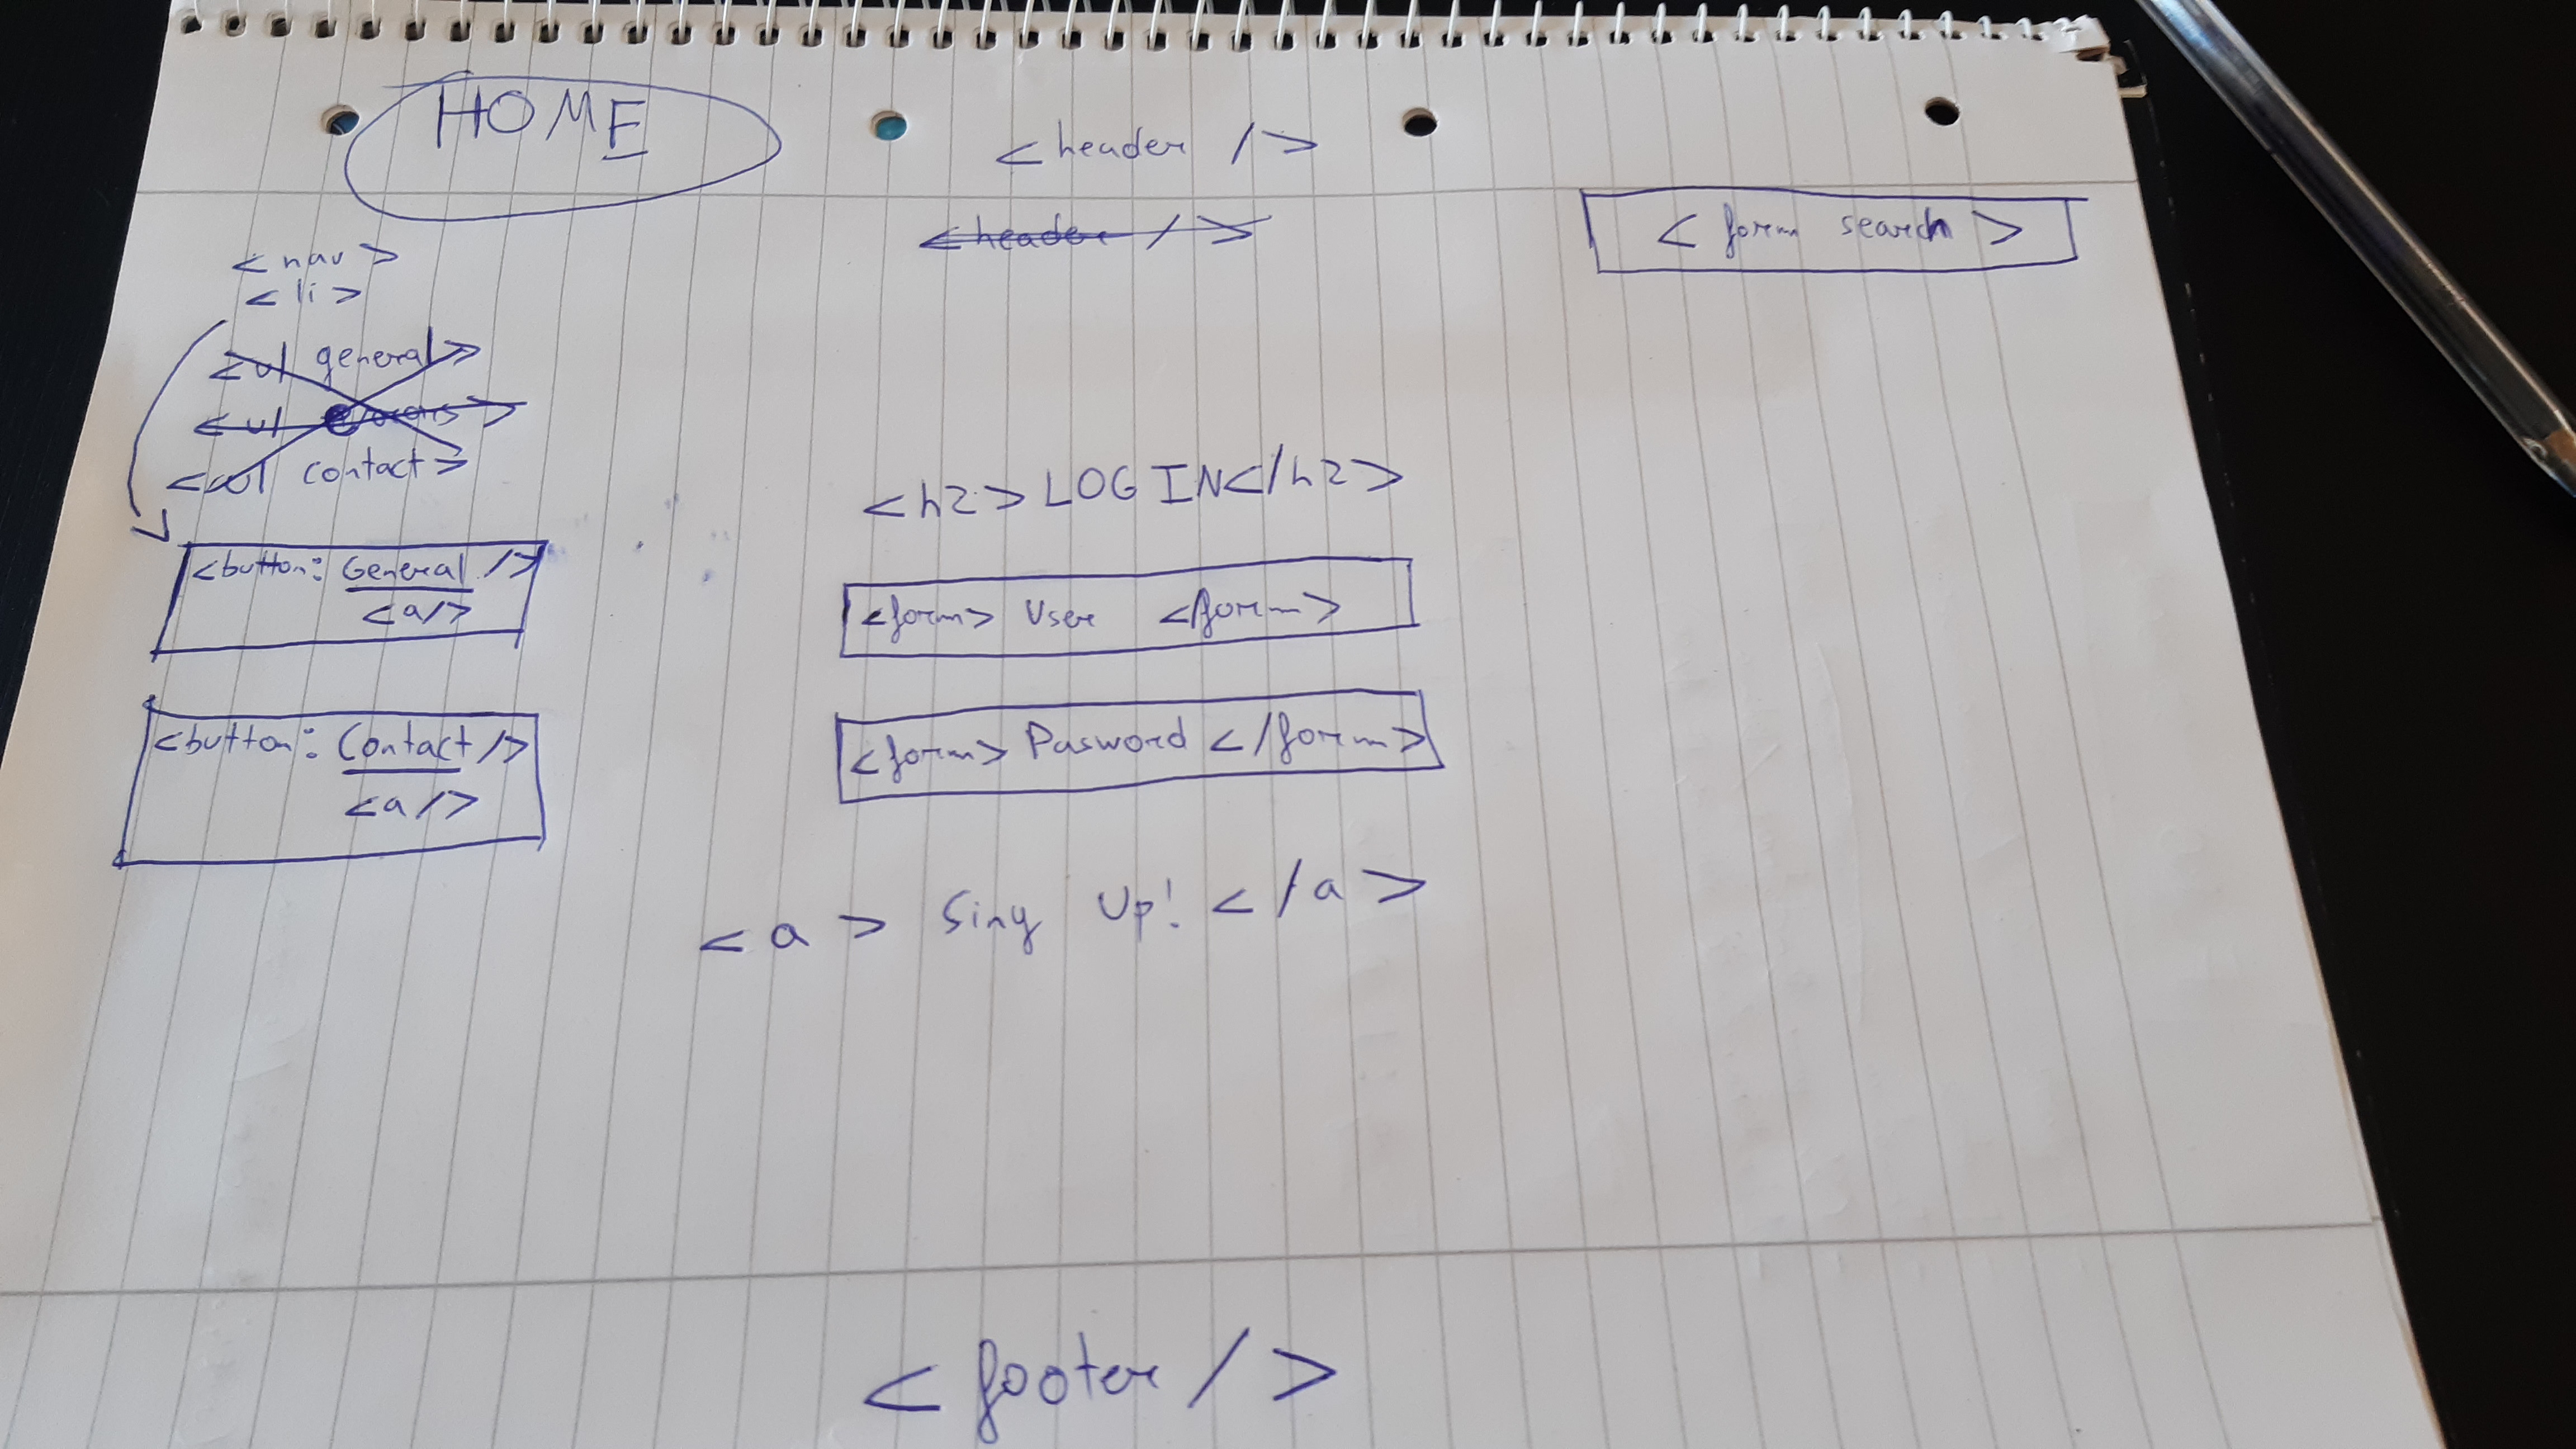 HOME
<header />
<header />
<form search>
<nav>
<li>
<ul general>
<ul
<ul contact>
<button: General />
<a/>
<button: Contact />
<a/>
<h2>LOG IN</h2>
<form> User </form>
<form> Pasword </form>
<a> Sing Up! </a>
<footer/>